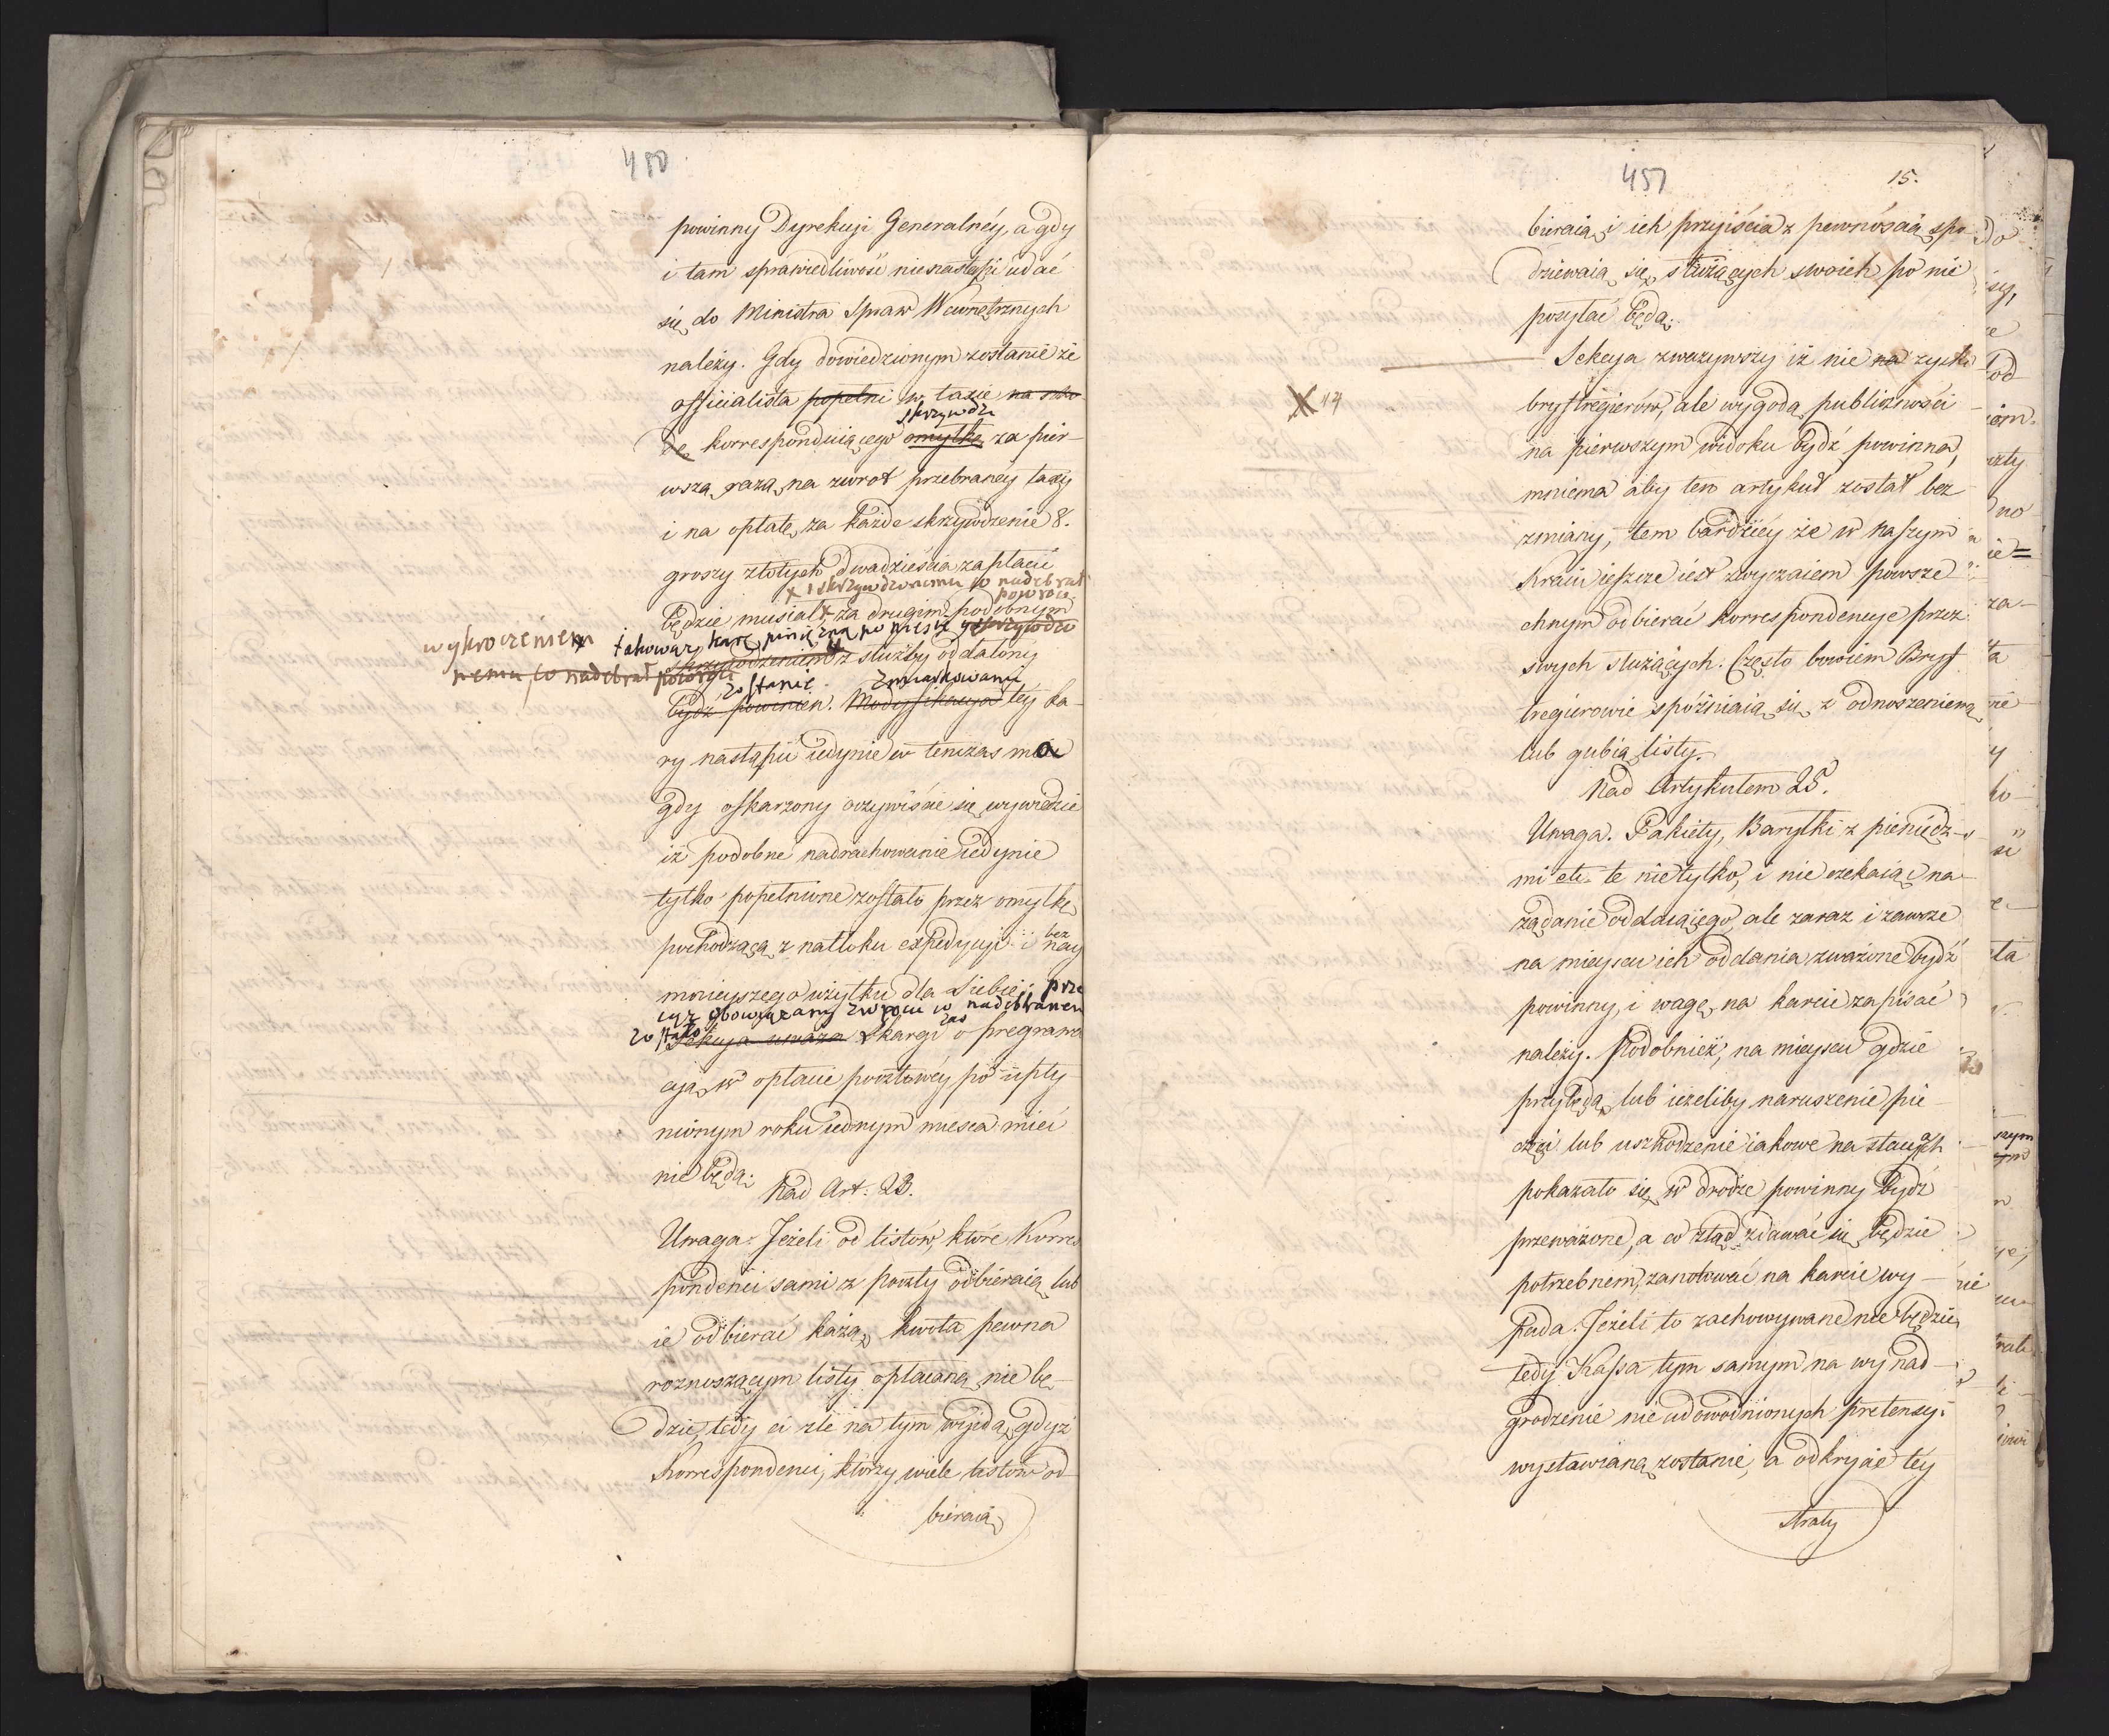 450
powinny Dyrekcyi Generalnéy, a gdy
i tam sprawiedliwość nienastąpi udać
się do Ministra Spraw Wewnętrznych
należy. Gdy dowiedzionym zostanie że
officialista popełni w taxie na szko
skrzywdzi
dę korrespondującego omyłkę za pier-
wszą razą na zwrot przebranéy taxy
i na opłatę za każde skrzywdzenie 8.
groszy złotych dwadzieścia zapłacić
x i skrzywdzonemu co nadebrał
powróci
będzie musiał x za drugim podobnym
wykroczeniem takowąż karę pieniężną poniesie
skrzywdzeniem z służby oddalony
nemu, co nadebrał powróci
zostanie. Zmiarkowanie
bydź powinien. Modyfikacya téy ka-
ry nastąpić iedynie w tenczas ma
gdy oskarzony oczywiście się wywiedzie
iż podobne nadrachowanie iedynie
tylko popełnione zostało przez omyłkę
pochodzącą z natłoku expedycyi i bez nay
mnieyszego użytku dla Siebie; prze
cyż obowiązany zwrócić co nadebranem
zostało
Sekcya uważa Skargi zaś o pregrawa
cyą w opłacie pocztowéy po upły-
nionym roku iednym miesca mieć
nie będą.
Nad Art. 23.
Uwaga. Jeżeli od listów, które Korres
pondenci sami z poczty odbieraią lub
ie odbierać każą, kwota pewna
roznoszącym listy opłacaną nie bę-
dzie, tedy ci źle na tym wyjdą, gdyż
Korrespondenci, którzy wiele listów od-
bieraią
457
15.
bieraią i ich przyiścia z pewnością spo
dziewaią się, służących swoich po nie
posyłać będą.
Sekcya zważywszy iż nie na zysk
bryftregierów, ale wygoda publiczności
X 44
na pierwszym widoku bydź powinna,
mniema aby ten artykuł został bez
zmiany, tem bardziéy że w naszym
Kraiu ieszcze iest zwyczaiem powsze
chnym odbierać korrespondencye przez
swych służących. Często bowiem Bryf
tregierowie spóźniaią się z odnoszeniem
lub gubią listy.
Nad Artykułem 25.
Uwaga. Pakiety, Baryłki z pieniędz-
mi etc. te nietylko, i nie czekaiąc na
żądanie oddaiącego, ale zaraz i zawsze
na mieyscu ich oddania zważone bydź
powinny, i wagę na karcie zapisać
należy. Podobnież, na mieyscu gdzie
przybędą, lub ieżeliby naruszenie pie-
częci lub uszkodzenie iakowe na stacyach
pokazało się w drodze powinny bydź
przeważone, a co ztąd zdawać się będzie
potrzebnem, zanotować na karcie wy-
pada. Jeżeli to zachowywane nie będzie,
tedy Kassa tym samym na wynad-
grodzenie nieudowodnionych pretensyi
wystawianą zostanie, a odkrycie téy
straty